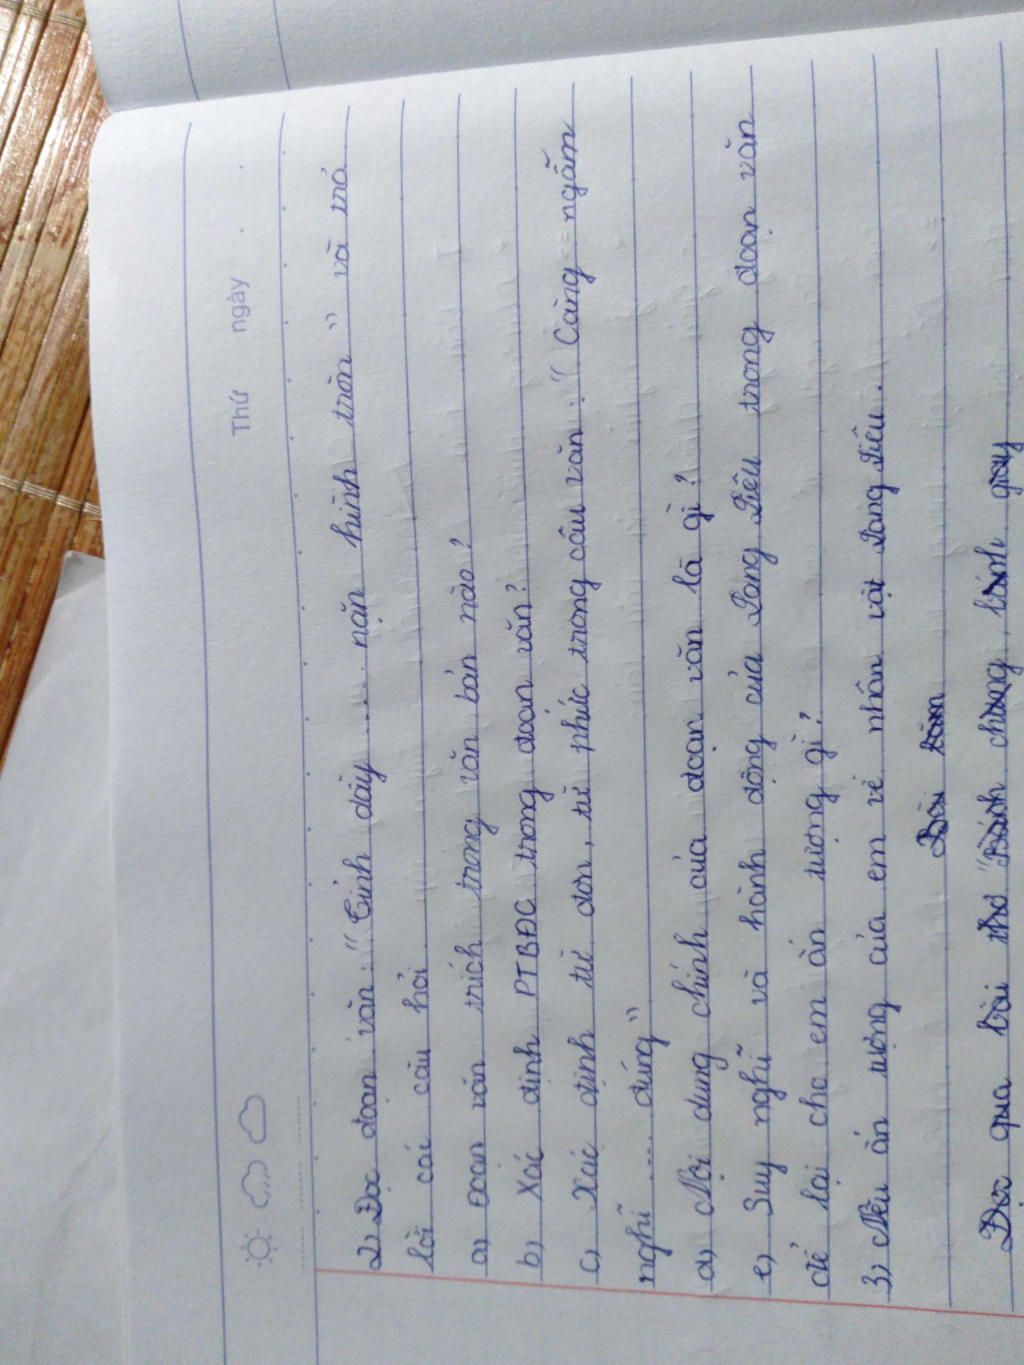 Thứ ngày
2) Đọc đoạn văn: "Tỉnh dậy ..... nặn hình tròn" và trả
lời các câu hỏi
a) Đoạn văn trích trong văn bản nào?
b) Xác định PTBĐC trong đoạn văn?
c) Xác định từ đơn, từ phức trong câu văn: "Càng ngẫm
nghĩ .... đúng"
d) Nội dung chính của đoạn văn là gì?
e) Suy nghĩ và hành động của Lang Liêu trong đoạn văn
để lại cho em ấn tượng gì?
3) Nêu ấn tượng của em về nhân vật Lang Liêu.
Bài làm
Đọc qua bài thơ "Bánh chưng, bánh giầy